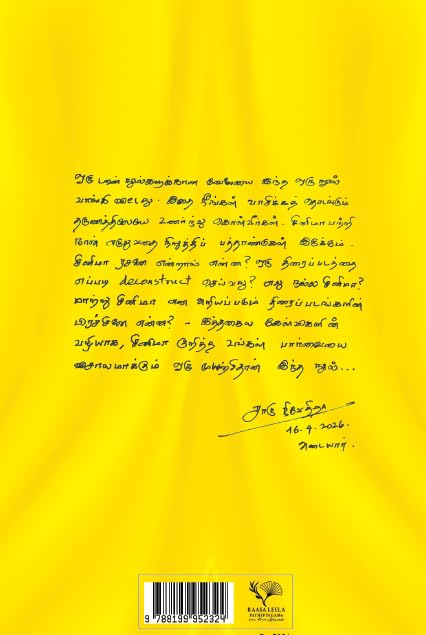 ஒரு டஜன் நூல்களுக்கான வேலையை இந்த ஒரு நூல்
வாங்கி விட்டது. இதை நீங்கள் வாசிக்கத் தொடங்கும்
தருணத்திலேயே உணர்ந்து கொள்வீர்கள். சினிமா பற்றி
நான் எழுதுவதை நிறுத்திப் பத்தாண்டுகள் இருக்கும்.
சினிமா ரசனை என்றால் என்ன? ஒரு திரைப்படத்தை
எப்படி deconstruct செய்வது? எது நல்ல சினிமா?
மாற்று சினிமா என அறியப்படும் திரைப்படங்களின்
பிரச்சினை என்ன? - இத்தகைய கேள்விகளின்
வழியாக, சினிமா குறித்த உங்கள் பார்வையை
விசாலமாக்கும் ஒரு முயற்சிதான் இந்த நூல்...
சாரு நிவேதிதா
16.4.2026.
அடையார்.
9 788199 952324
RAASA LEELA
PATHIPPAGAM